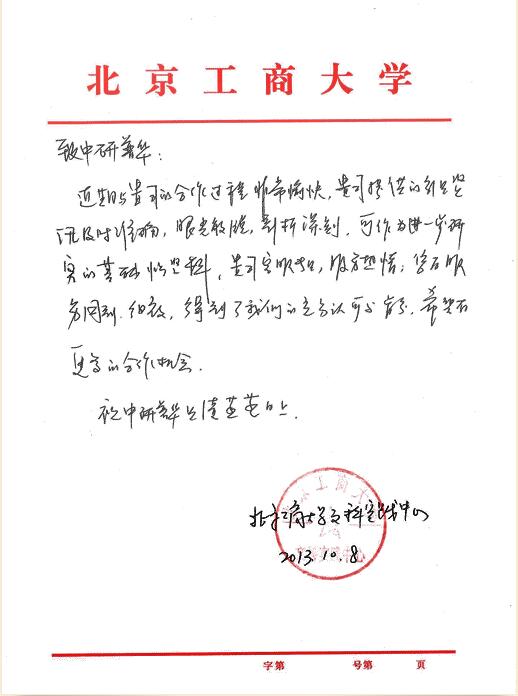 北京工商大学
致中研普华：
近期与贵司的合作过程非常愉快，贵司提供的行业资
讯及时准确，眼光敏锐，剖析深刻，可作为进一步研
究的基础性资料，贵司客服专业，服务热情；售后服
务周到、细致，得到了我们的充分认可与肯定。希望有
更多的合作机会。
祝中研普华公司蒸蒸日上。
北京工商大学文科实践中心
2013.10.8
字第 号第 页